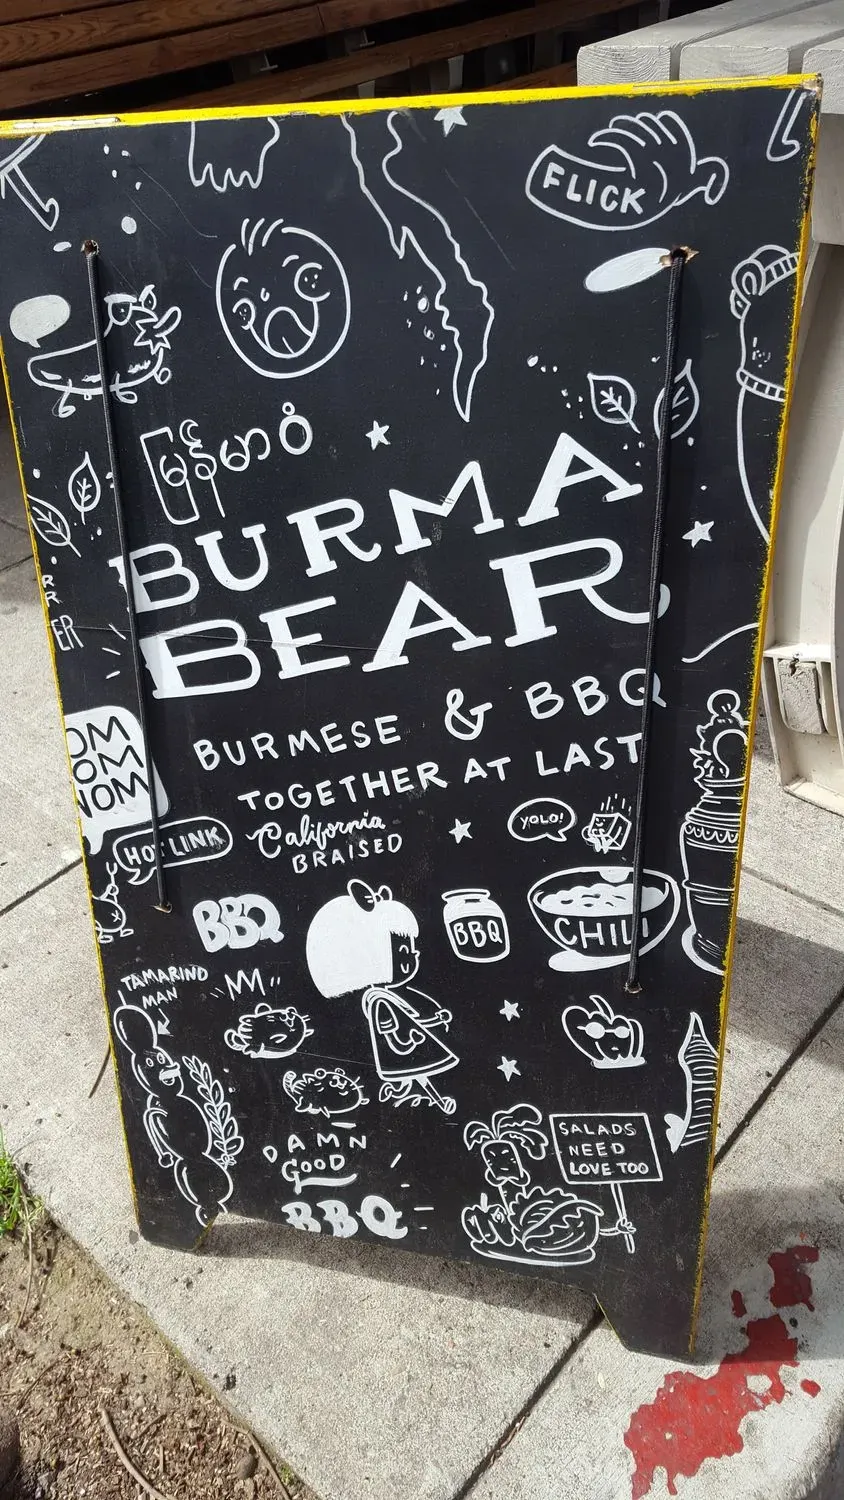 FLICK
မြန်မာဝံ
BURMA
BEAR
BURMESE & BBQ
TOGETHER AT LAST
OM
OM
NOM
HOT LINK
California
BRAISED
YOLO!
BBQ
BBQ
CHILI
TAMARIND
MAN
DAMN
GOOD
BBQ
SALADS
NEED
LOVE TOO